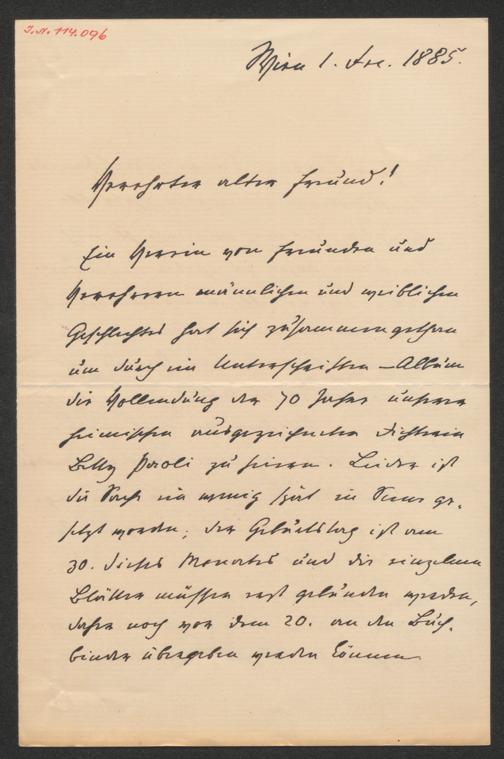 J.N. 114.096
Wien 1. Dec. 1885.
Verehrter alter Freund!
Ein Verein von Freunden und
Verehrern männlichen und weiblichen
Geschlechtes hat sich zusammengethan
um durch ein Unterschriften-Album
die Vollendung der 70 Jahre unserer
heimischen ausgezeichneten Dichterin
Betty Paoli zu feiern. Leider ist
die Sache ein wenig spät in Scene ge-
setzt worden; der Geburtstag ist am
30. dieses Monates und die einzelnen
Blätter müssen erst gebunden werden,
daher noch vor dem 20. an den Buch-
binder übergeben werden können